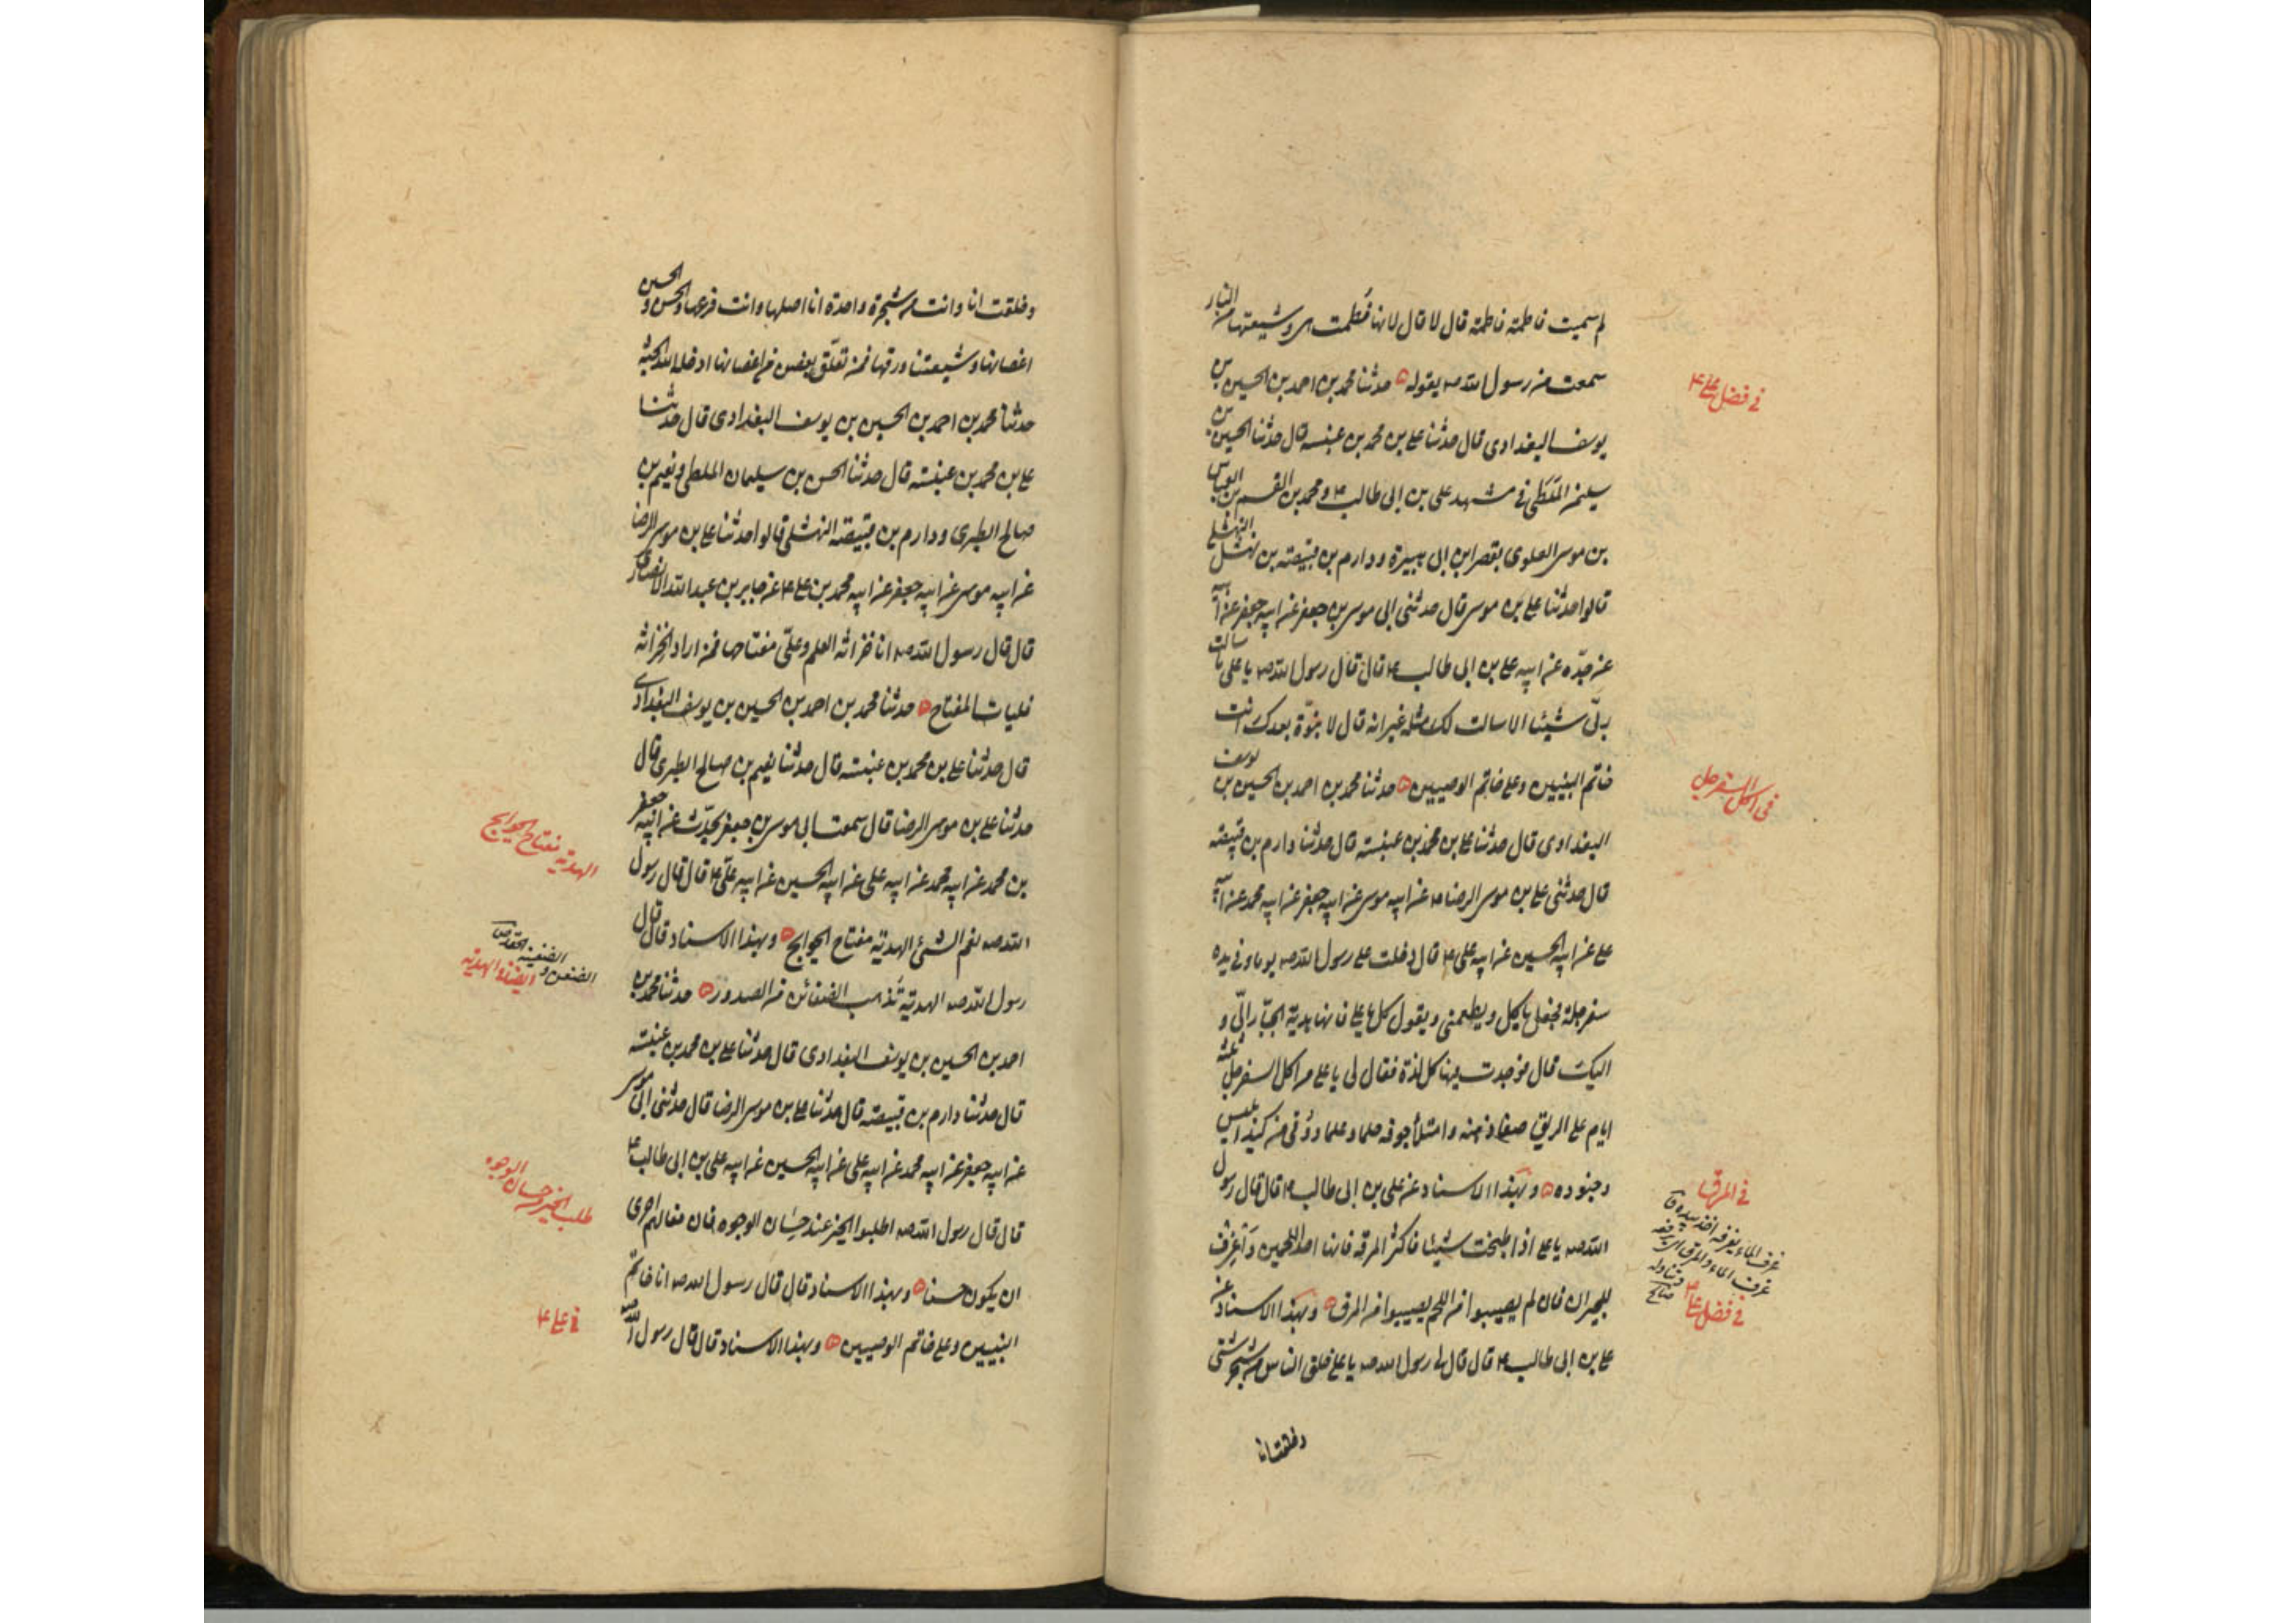 لم سميت فاطمة فاطمة قال لا قال لانها فُطمت هي وشيعتها من النار
سمعت من رسول الله ص يقوله ه حدثنا محمد بن احمد بن الحسين بن
يوسف البغدادى قال حدثنا على بن محمد بن عنبسه قال حدثنا الحسين بن
سليمن الملطى فى مشهد على بن ابى طالب ع و محمد بن القسم بن العباس
بن موسى العلوى بقصر ابن ابى هبيرة ودارم بن قبيصة بن نهشل النهشلى
قالوا حدثنا على بن موسى قال حدثنى ابى موسى بن جعفر عن ابيه جعفر عن ابيه
عن جدّه عن ابيه على بن ابى طالب ع قال قال رسول الله ص يا على ما سالت
ربّى شيئا الا سالت لك مثله غير انه قال لا نبوّة بعدك انت
خاتم النبيين وعلى خاتم الوصيين ه حدثنا محمد بن احمد بن الحسين بن يوسف
البغدادى قال حدثنا على بن محمد بن عنبسه قال حدثنا دارم بن قبيصه
قال حدثنى على بن موسى الرضا ع عن ابيه موسى عن ابيه جعفر عن ابيه محمد عن ابيه
على عن ابيه الحسين عن ابيه على ع قال دخلت على رسول الله ص يوما وفى يده
سفرجلة فجعل ياكل ويطعمنى ويقول كل يا على فانها هدية الجبّار الىّ و
اليك قال فوجدت فيها كل لذة فقال لى يا على من اكل السفرجل ثلثة
ايام على الريق صفا ذهنه وامتلأ جوفه حلما وعلما ووُقى من كيد ابليس
وجنوده ه وبهذا الاسناد عن على بن ابى طالب ع قال قال رسول
الله ص يا على اذا طبخت شيئا فاكثر المرقة فانها احد اللحمين وَاغرف
للجيران فان لم يصيبوا من اللحم يصيبوا من المرق ه وبهذا الاسناد عن
على بن ابى طالب ع قال قال لى رسول الله ص يا على خلق الناس من شجر شتى
وخلقت انا
فى فضل على ع
فى اكل السفرجل
فى المرق
غرف الماء يغرفه اخذ بيده ق
فى فضل على ع
وخلقت انا وانت من شجرة واحدة انا اصلها وانت فرعها والحسن و الحسين
اغصانها وشيعتنا ورقها فمن تعلّق بغصن من اغصانها ادخله الله الجنة
حدثنا محمد بن احمد بن الحسين بن يوسف البغدادى قال حدثنا
على بن محمد بن عنبسه قال حدثنا الحسن بن سليمان الملطى و نعيم بن
صالح الطبرى ودارم بن قبيصة النهشلى قالوا حدثنا على بن موسى الرضا
عن ابيه موسى عن ابيه جعفر عن ابيه محمد بن على ع عن جابر بن عبد الله الانصارى
قال قال رسول الله ص انا خزانة العلم وعلىّ مفتاحها فمن اراد الخزانة
فليات المفتاح ه حدثنا محمد بن احمد بن الحسين بن يوسف البغدادى
قال حدثنا على بن محمد بن عنبسه قال حدثنا نعيم بن صالح الطبرى قال
حدثنا على بن موسى الرضا قال سمعت ابى موسى بن جعفر يحدّث عن ابيه جعفر
بن محمد عن ابيه محمد عن ابيه على عن ابيه الحسين عن ابيه على ع قال قال رسول
الله ص نعم الشىء الهدية مفتاح الحوايج ه وبهذا الاسناد قال قال
رسول الله ص الهدية تُذهب الضغائن من الصدور ه حدثنا محمد بن
احمد بن الحسين بن يوسف البغدادى قال حدثنا على بن محمد بن عنبسه
قال حدثنا دارم بن قبيصه قال حدثنا على بن موسى الرضا قال حدثنى ابى موسى
عن ابيه جعفر عن ابيه محمد عن ابيه على عن ابيه الحسين عن ابيه على بن ابى طالب ع
قال قال رسول الله ص اطلبوا الخير عند حِسَان الوجوه فان فعالهم احرى
ان يكون حسنا ه وبهذا الاسناد قال قال رسول الله ص انا خاتم
النبيين وعلى خاتم الوصيين ه وبهذا الاسناد قال قال رسول الله ص
الهدية مفتاح الحوايج
الضغن و الضغينة الحقد ص
ايضا فى الهدية
طلب الخير من حسان الوجوه
فى على ع